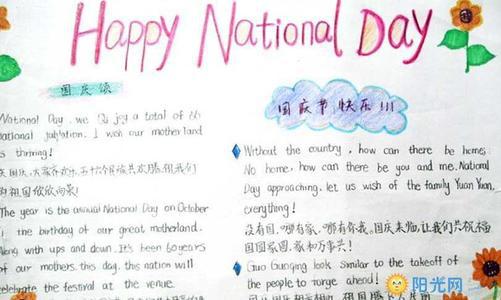 Happy National Day
国庆颂
National Day, we joy a total of 66
national jubilation. I wish our motherland
is thriving!
庆国庆,大家齐欢乐,五十六个民族共欢腾,祝我们
的祖国欣欣向荣!
The year is the annual National Day on October
1, the birthday of our great motherland.
Along with ups and down. It's been 60 years
of our mothers. day, this nation will
celebrate the festival at the venue.
国庆节快乐!!!
Without the country, how can there be home;
No home, how can there be you and me. National
Day approaching, let us wish of the family Yuan Yuan,
everything!
没有国,哪有家,哪有你我。国庆来临,让我们共祝福
国圆家圆,家和万事兴!
Guo Gunqing look similar to the takeoff of
the people to range ahead!
阳光网